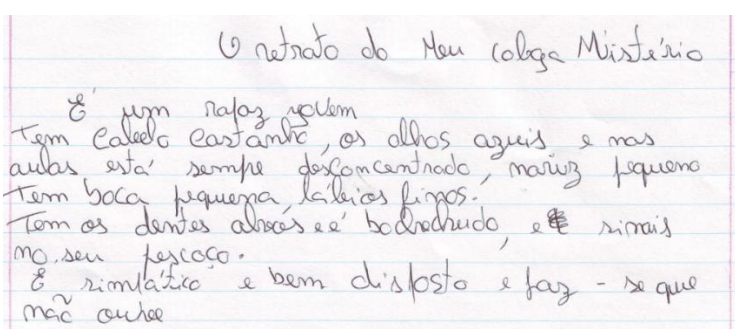 O retrato do Meu colega Mistério
É um rapaz jovem
Tem Cabelo Castanho, os olhos azuis e nas
aulas está sempre desconcentrado, nariz pequeno
Tem boca pequena, lábios finos.
Tem os dentes e é bochechudo, e sinais
no seu pescoço.
É simpático e bem disposto e faz-se que
não ouve